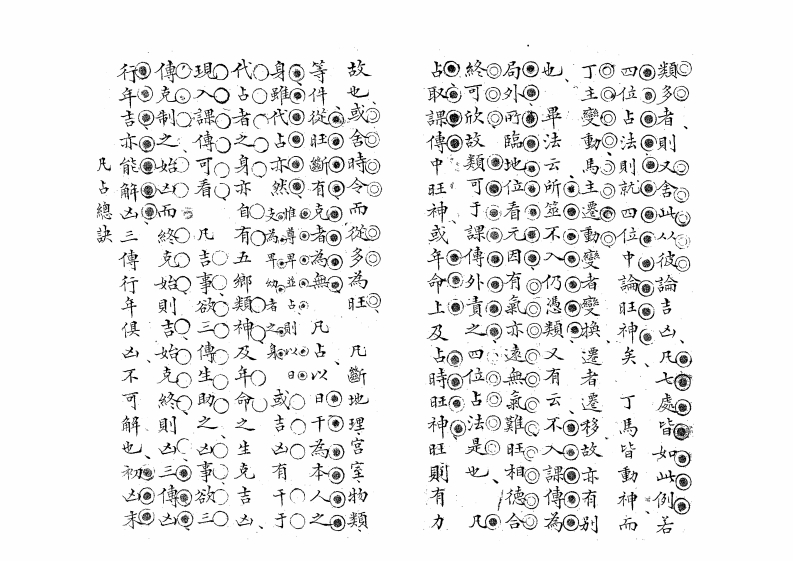 類多者則又舍此从彼論吉凶凡七處皆如此例若
四位占法則就四位中論旺神矣　丁馬皆動神而
丁主變動馬主遷動變者變換遷者遷移故亦有別
也　畢法云所筮不入仍憑類又有云不入課傳為
局外所臨地位看元因有氣亦遠無氣難旺相德合
終可欣故類可于課傳外責之四位占法是也　凡
占取課傳中旺神或年命上及占時旺神旺則有力
故也或舍時令而從多為旺　凡斷地理宮室物類
等件從旺斷有克者為無　凡占以日干為本人之
身雖代占亦然惟尊卑並占則以日支為卑幼者之身或吉凶有干于
代占者之身亦自有五鄉類神及年命之生克吉凶
現入課傳可看　凡吉事欲三傳生助之凶事欲三
傳克制之始凶而終克始則吉始克終則凶三傳凶
行年吉亦能解凶三傳行年俱凶不可解也初凶末
凡占總訣